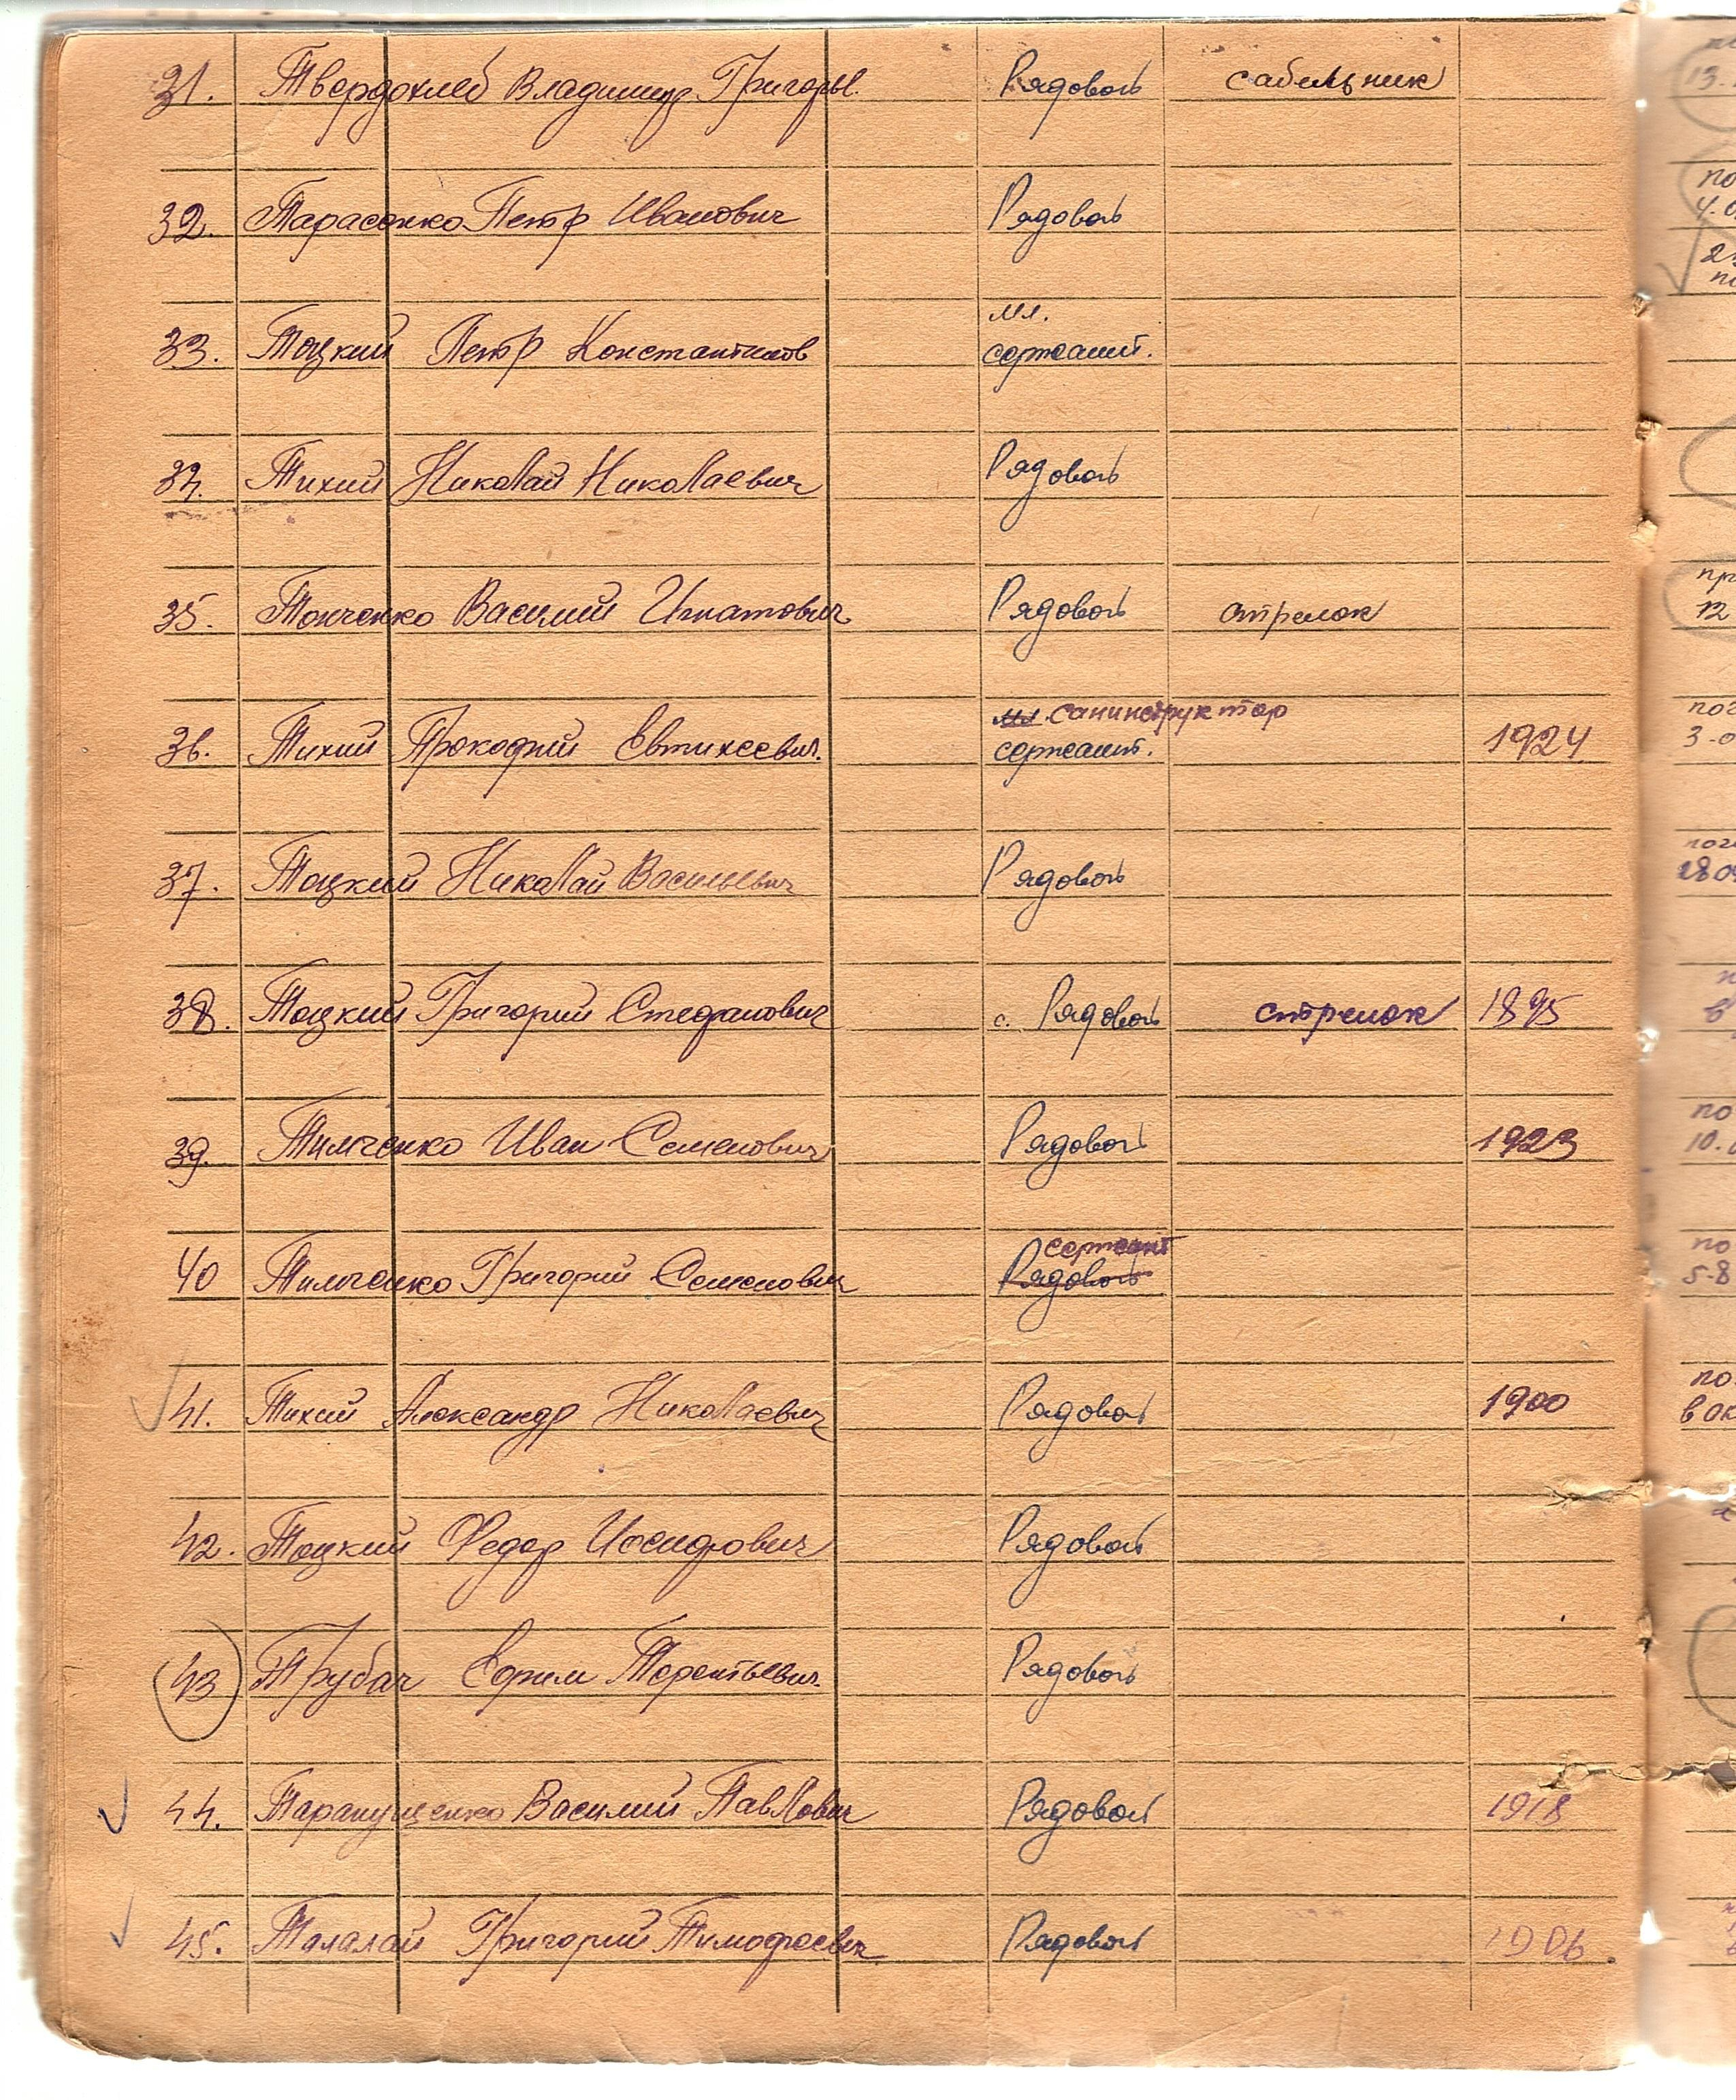 31. Твердохлеб Владимир Григорьев. Рядовой сабельник
32. Тарасенко Петр Иванович Рядовой
мл.
33. Тоцкий Петр Константинов сержант.
34. Тихий Николай Николаевич Рядовой
35. Тонченко Василий Игнатович Рядовой стрелок
мл. санинструктор
36. Тихий Прокофий Евтихеевич. сержант. 1924
37. Тоцкий Николай Васильевич Рядовой
38. Тоцкий Григорий Стефанович с. Рядовой стрелок 1895
39. Тимченко Иван Семенович Рядовой 1923
сержант
40 Тимченко Григорий Семенович Рядовой
41. Тихий Александр Николаевич Рядовой 1900
42. Тоцкий Федор Иосифович Рядовой
43 Трубач Ефим Терентьевич. Рядовой
44. Тарапущенко Василий Павлович Рядовой 1918
45. Талалай Григорий Тимофеевич Рядовой 1906
13.
по
4.0
пр
12
3-0
28.0
в
по
10.
по
5-8
по
в ок